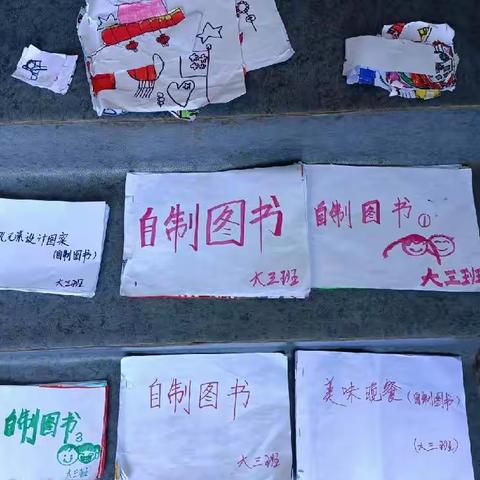 元素设计图案
(自制图书)
大三班
自制图书
大三班
自制图书①
大三班
自制图书
3
大三班
自制图书
大三班
美味晚餐(自制图书)
(大三班)